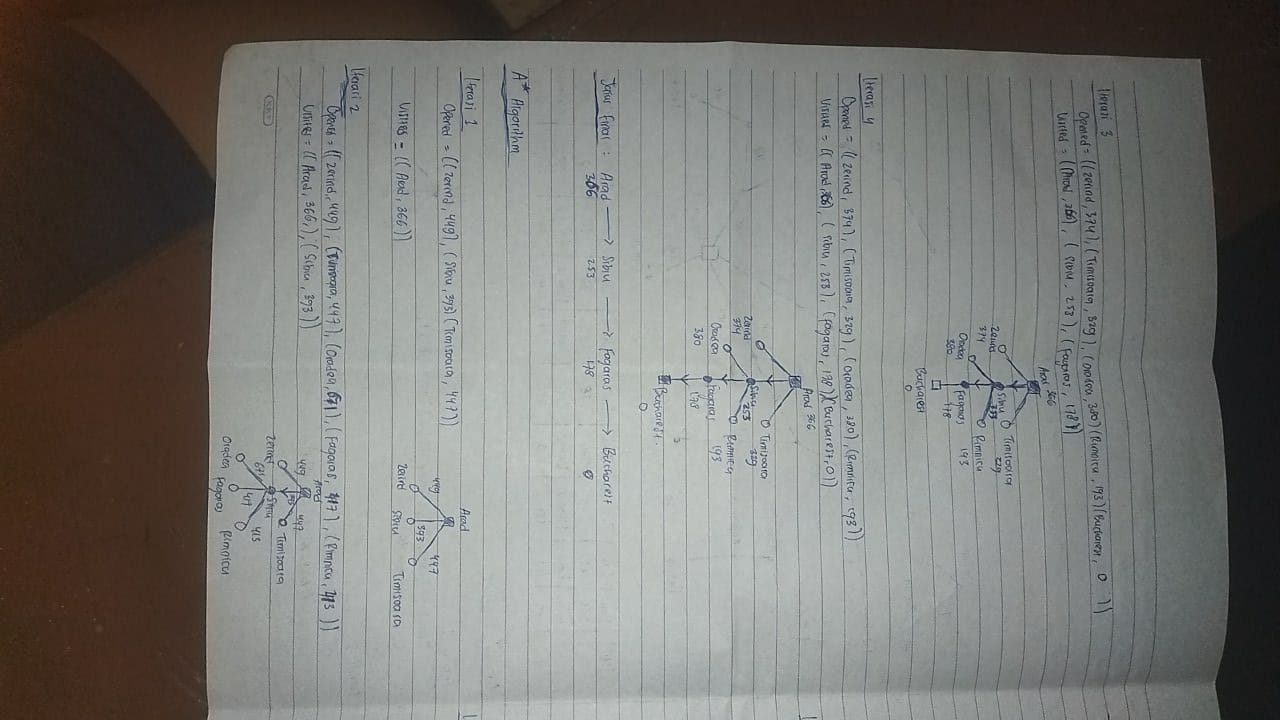 Iterasi 3
Opened = ((Zerind, 374), (Timisoara, 329), (Oradea, 380) (Rimnicu, 193) (Bucharest, 0))
Visited = ((Arad, 366), (Sibiu, 253), (Fagaras, 178))
Arad 366
Zerind
374
Sibiu
253
Timisoara
329
Oradea
380
Fagaras
178
Rimnicu
193
Bucharest
0
Iterasi 4
Opened = ((Zerind, 374), (Timisoara, 329), (Oradea, 380), (Rimnicu, 193))
Visited = ((Arad, 366), (Sibiu, 253), (Fagaras, 178) (Bucharest, 0))
Arad 366
Zerind
374
Sibiu
253
Timisoara
329
Oradea
380
Fagaras
178
Rimnicu
193
Bucharest.
0
Jalur Final : Arad → Sibiu → Fagaras → Bucharest
366 253 178 0
A* Algorithm
Iterasi 1
Opened = ((Zerind, 449), (Sibiu, 393) (Timisoara, 447))
Visited = ((Arad, 366))
Arad
449 393 447
Zerind Sibiu Timisoara
Iterasi 2
Opened = ((Zerind, 449), (Timisoara, 447), (Oradea, 671), (Fagaras, 417), (Rimnicu, 413))
Visited = ((Arad, 366,), (Sibiu, 393))
Arad
449 393 447
Zerind Sibiu Timisoara
671 417 413
Oradea Fagaras Rimnicu
KKY